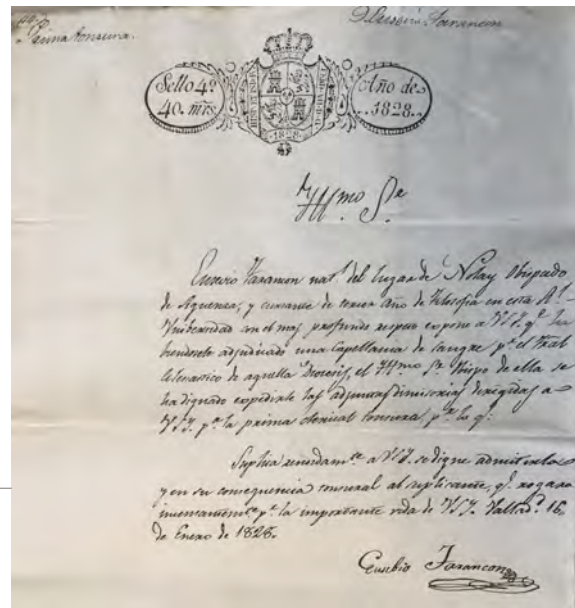 Prima tonsura.
D. Eusevio Tarancon
Sello 4º
40. mrs.
HISP. ET IND. REX
1828
Año de
1828.
Yllmo Sr
Eusevio Tarancon natl. del lugar de Nolay Obispado
de Siguenza, y cursante de tercer año de Filosofia en esta Rl.
Universidad con el mas profundo respeto expone a VSY. qe. ha
biendosele adjudicado una Capellania de sangre pr. el Trib
Eclesiastico de aquella Diocesis, el Yllmo Sr. Obispo de ella se
ha dignado expedirle las adjuntas dimisorias dirigidas a
VSY. pa. la prima clerical tonsura, pr. lo qe.
Suplica rendidamte. a VSY. se digne admitirlas
y en su consequencia tonsural al suplicante, qe. rogara
incesantemte. pr. la importante vida de VSY. Vallad. 16.
de Enero de 1828.
Eusebio Tarancon